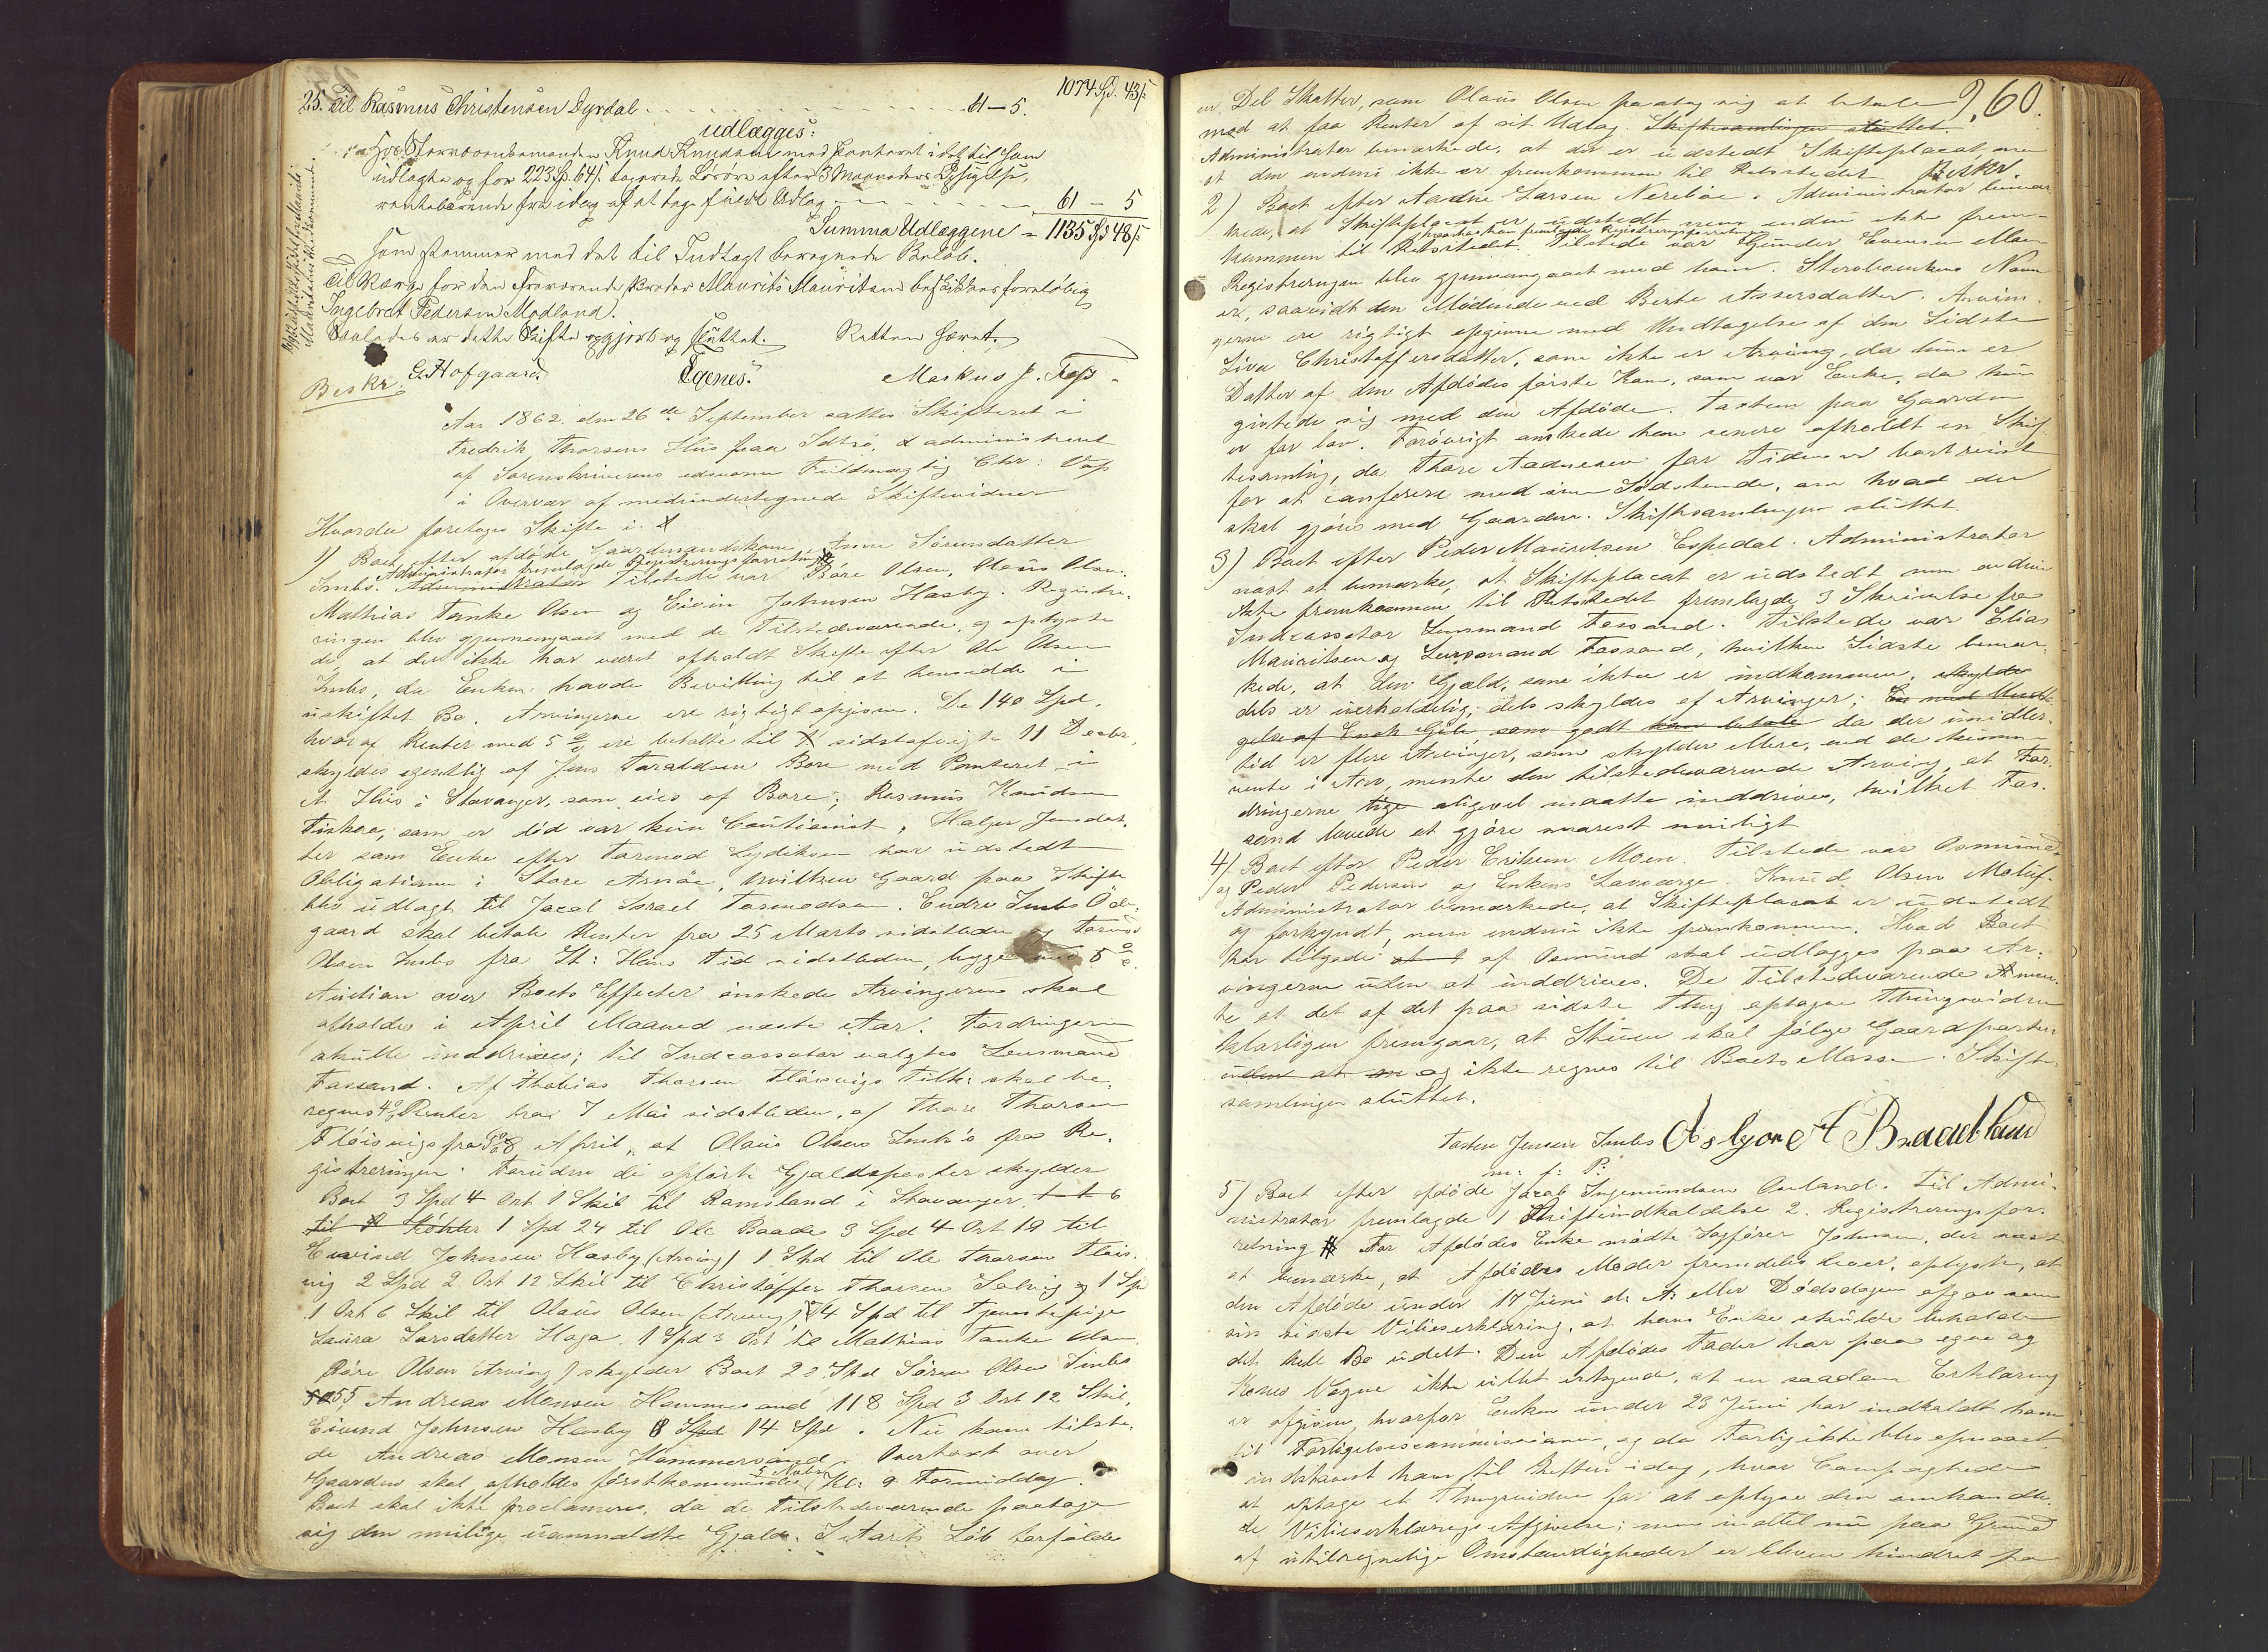 1074 Spd. 43 s
25. Til Rasmus Christensen Dyrdal . . . . . . 61 — 5.
udlægges:
Hos Knud Knudsen med Panteret i det til ham
udlagte og for 223 Spd 64 s Løsøre efter 3 Maaneders Opsigelse,
renteb​ærende fra idag af at tage fuldt Udlag . . . 61 — 5
Summa Udlæggene = 1135 Spd 48 s
som stemmer med det til Indtægt beregnede Beløb.
Til Værge for den fraværende Broder Maurits Mauritsen foreløbig
Ingebret Pedersen Modland.
Saaledes er dette Skifte opgjort og sluttet. Retten hævet.
G. Hofgaard. Egenes. Markus J. Foss
Beskr.
Aar 1862 den 26de September sattes Skifteret i
Fredrik Thorsens Hus paa Idsø, & administreret
af Sorenskriverens edsvorne Fuldmægtig Chr: Voss
i Overvær af medundertegnede Skiftevidner
Hvorda foretoges Skifte i: &
1) Boet efter afdøde Gaardmandskone Anne Sørensdatter
Administrator fremlagde Registreringsforretning #
Imbs. Administrator Tilstede var Børe Olsen, Olaus Olsen
Mathias Tanke Olsen og Eivin Johnsen Hasby. Registre-
ringen blev gjennemgaaet med de Tilstedeværende, og oplyste
de, at der ikke har været afholdt Skifte efter Ole Olsen
Imbs, da Enken havde Bevilling til at hensidde i
uskiftet Bo. Arvingerne ere rigtigt opgivne. De 140 Spd.
hvoraf Renter med 5 % ere betalte til sidstafvigte 11 Decbr,
skyldes egentlig af Jens Taraldsen Bore med Panteret i
et Hus i Stavanger, som eies af Bore; Rasmus Knudsen
Fiskaa, som er død var kun Cautionist, Helger Jensdat-
ter som Enke efter Tormod Lydiksen har udstedt
Obligationen i Store Amøe, hvilken Gaard paa Skifte
blev udlagt til Jacob Israel Tormodsen. Endre Imbs Øde-
gaard skal betale Renter fra 25 Marts sidstleden og Tormod
Olsen Imbs fra St: Hans Tid sidstleden, begge med 5 %.
Auction over Boets Effecter ønskede Arvingerne skal
afholdes i April Maaned næste Aar. Fordringerne
skulle inddrives; til Indcassator valgtes Lensmand
Fossand. Af Thobias Thorsen Fløisvigs Tilh: skal be-
regnes 4 % Renter fra 7 Mai sidstleden, af Thore Thorsen
Fløisvigs fra April, at Olaus Olsens Imb's fra Re-
gistreringen. Foruden de opførte Gjældsposter skylder
Boet 3 Spd 4 Ort 1 Skil til Ramsland i Stavanger
til Köhler 1 Spd 24 til Ole Baade 3 Spd 4 Ort 19 til
Eivind Johnsen Hasby (Arving) 1 Spd til Ole Thorsen Fløis-
vig 2 Spd 2 Ort 12 Skil til Christoffer Thorsen Solvig og 1 Sp
1 Ort 6 Skil til Olaus Olsen (Arving) 4 Spd til Tjenestepige
Laura Larsdatter Haga. 1 Spd 3 Ort til Mathias Tanke Olsen
Børe Olsen (Arving) skylder Boet 22 Spd Søren Olsen Imbs
55, Andreas Monsen Hammersand 118 Spd 3 Ort 12 Skil,
Eivind Johnsen Hasby 8 Spd 14 Spd. Nu kom tilste-
de Andreas Monsen Hammersand. Overtaxt over
Gaarden skal afholdes førstkommende 5 Novbr Kl: 9 Formiddag.
Boet skal ikke proclameres, da de Tilstedeværende paatage
sig den mulige uanmeldte Gjæld. I Aarets Løb forfalde
260.
en Del Skatter, som Olaus Olsen paatog sig at betale
mod at faa Renter af sit Udlæg. Skiftesamlingen sluttet.
Administrator bemærkede, at der er udstedt Skifteplacat men
at den endnu ikke er fremkommen til Retsstedet Beskr.
2) Boet efter Aadne Larsen Nerebøe. Administrator bemær-
kede, at Skifteplacat er udstedt men endnu ikke frem-
kommen til Retsstedet. hvorhos han fremlagde Registreringsforretning Tilstede var Gunder Evensen Moen
Registreringen blev gjennemgaaet med ham. Stervboenkens Navn
er, saavidt den Mødende ved Berte Assersdatter. Arvin-
gerne ere rigtigt opgivne med Undtagelse af den Sidste
Siva Christoffersdatter, som ikke er Arving, da hun er
Datter af den Afdødes første Kone, som var Enke, da hun
giftede sig med den Afdøde. Taxten paa Gaarden
er for lav. Forøvrigt ønskede han senere afholdt en Skif-
tesamling, da Thore Aadnesen for Tiden er bortreist
for at conferere med sine Sødskende, om hvad der
skal gjøres med Gaarden. Skiftesamlingen sluttet.
3) Boet efter Peder Mauritsen Espedal. Administrator
næst at bemærke, at Skifteplacat er udstedt, men endnu
ikke fremkommen til Retsstedet fremlagde 3 Skrivelse fra
Indcassator Lensmand Fossand. Tilstede var Elias
Mauritsen og Lensmand Fossand, hvilken Sidste bemær-
kede, at den Gjæld, som ikke er indkommen, skyldes
dels er uerholdelig, dels skyldes af Arvinger; En med Undta-
gelse af Enok Gøle som godt kan betale da der imidler-
tid er flere Arvinger, som skylder Mere, end de kunne
vente i Arv, mente den tilstedeværende Arving, at For-
dringerne alligevel maatte inddrives, hvilket Fos-
sand lovede at gjøre snarest muligt
4) Boet efter Peder Eriksen Moen. Tilstede var Osmund
og Peder Pedersen og Enkens Laugværge. Knud Olsen Moluf.
Administrator bemærkede, at Skifteplacat er udstedt
og forkyndt, men endnu ikke fremkommen. Hvad Boet
har tilgode af Osmund skal udlægges paa Ar-
vingerne uden at inddrives. De Tilstedeværende men-
te at det af det paa sidste Thing optagne Thingsvidne
klarligen fremgaar, at Stuen skal følge Gaardparten
uden at og ikke regnes til Boets Masse. Skifte-
samlingen sluttet.
Torten Jensen Imbs Asbjørn A Braadland
m: f: P:
5) Boet efter afdøde Jacob Ingemundsen Aarland. Til Admi-
nistrator fremlagde 1 Skifteindkaldelse 2. Registreringsfor-
retning # For Afdødes Enke mødte Sagfører Johnsen, der næst
at bemærke, at Afdødes Moder fremdeles lever, oplyste, at
den Afdøde under 17 Juni d: A: eller Dødsdagen afgav som
sin sidste Villieserklæring, at hans Enke skulde beholde
det hele Bo udelt. Den Afdødes Fader har paa egne og
Kones Vegne ikke villet erkjende, at en saadan Erklæring
er afgiven, hvorfor Enken under 28 Juni har indkaldt ham
til Forligelsescommissionen, og da Forlig ikke blev opnaaet
indstævnt ham til Retten idag, hvor Comp agtede
at optage et Thingsvidne for at oplyse den omhandle-
de Villieserklærings Afgivelse; men indtil nu paa Grund
af utilregnelige Omstændigheder er bleven hindret fra